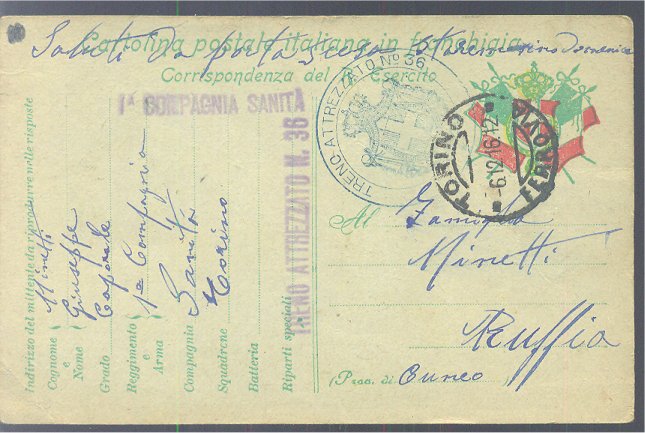 Cartolina postale italiana in franchigia
Saluti da porta susa
Domenica
Corrispondenza del R. Esercito
1ª COMPAGNIA SANITÀ
TRENO ATTREZZATO N. 36
TRENO ATTREZZATO Nº 36
TORINO FERROVIA
-6.12.16.12
Indirizzo del mittente da riprodurre nelle risposte
Cognome Minetti
e
Nome Giuseppe
Grado Caporale
Reggimento 1ª Compagnia
e
Arma
Compagnia Sanità
Squadrone Torino
Batteria
Riparti speciali
Al Famiglia
Minetti
Ruffia
(Prov. di Cuneo